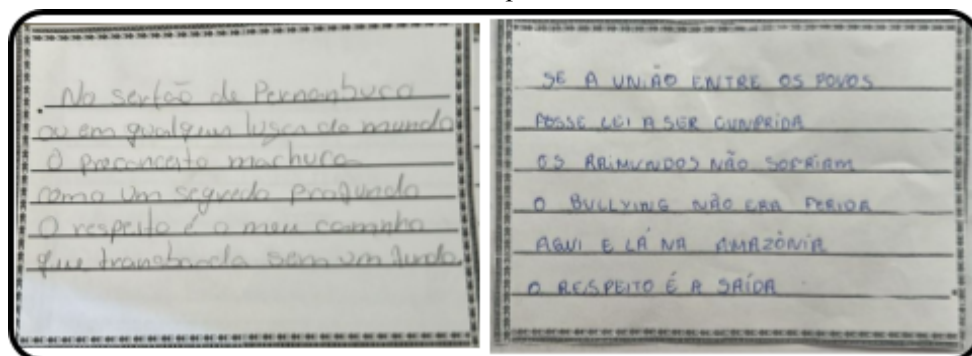 No sertão de Pernanbuco
ou em qualquer lugar do mundo
O preconceito machuca
como um segredo profundo
O respeito é o meu caminho
que transborda sem um fundo
SE A UNIÃO ENTRE OS POVOS
FOSSE LEI A SER CUMPRIDA
OS RAIMUNDOS NÃO SOFRIAM
O BULLYING NÃO ERA FERIDA
AQUI E LÁ NA AMAZÔNIA
O RESPEITO É A SAÍDA.